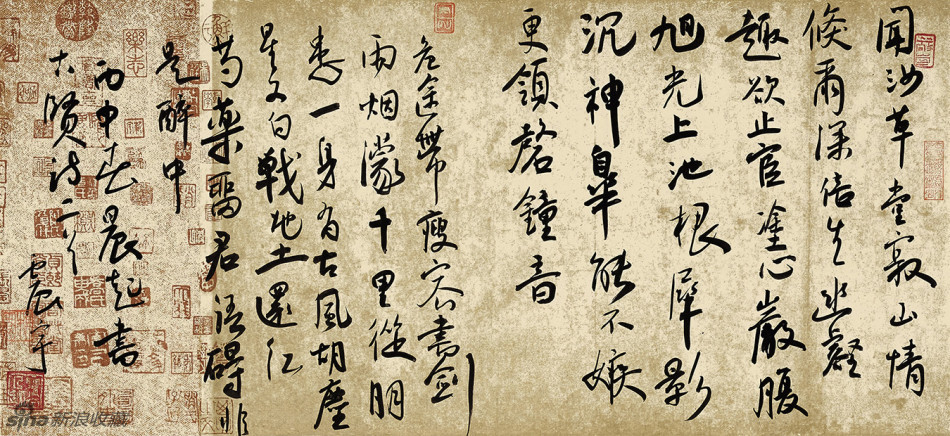 聞汝草堂寂山情
倏爾深倍生幽壑
趣欲止宦塗心嚴腹
旭光上池根犀影
沉神皋能不嫉
更領磬鐘音
危途帶瘦容書劍
雨烟濛千里從明
一身有古風胡塵
星又白戰地土還红
芍藥醫君語碍非
是醉中
丙申春晨起書
古賢詩二首
震宇
sina新浪收藏